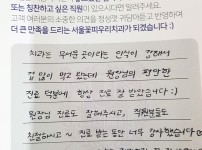 또는 칭찬하고 싶은 직원이 있으시다면 알려주세요.
고객 여러분의 소중한 의견을 정성껏 귀담아듣고 반영하여
더 큰 만족을 드리는 서울꽃피우리치과가 되겠습니다 :)
치과는 무서운 곳이라는 인식이 강해서
겁 많이 먹고 왔는데 원장님의 편안한
진료 덕분에 항상 진료 잘 받았습니다 :)
원장님 진료도 잘해주시고, 직원분들도
친절하시고 ~ 진료 받는 동안 너무 감사했습니다